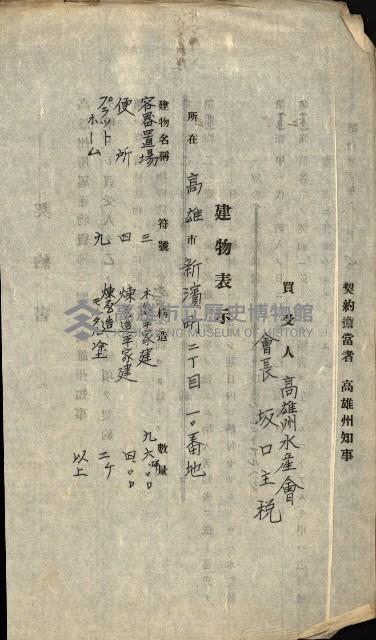 契約擔當者 高雄州知事
買受人 高雄州水産會
會長 坂口主税
建物表示
所在 高雄市新濱町二丁目一〇番地
建物名稱 符號 構造 數量
容器置場 三 木造平家建 九六坪〇〇
便所 四 煉瓦造平家建 四〇〇
プラットホーム 九 煉瓦造モルタル塗 二ケ
以上
高雄市立歷史博物館
KAOHSIUNG MUSEUM OF HISTORY